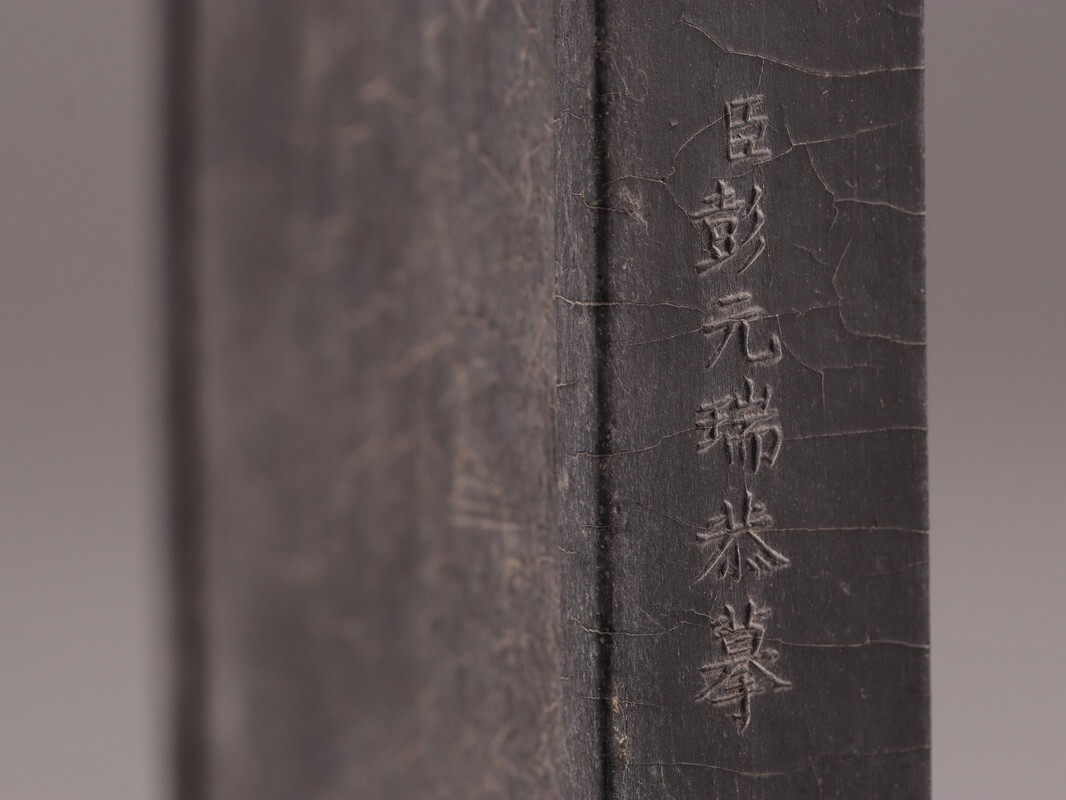 臣彭元瑞恭摹